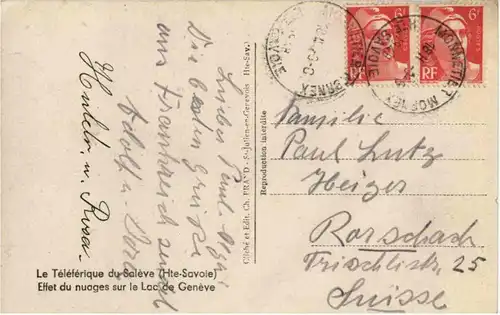 Liebes Paul
Die besten Grüsse
aus Frankreich sendet
Adolf u.
u. Rosa.
Le Téléférique du Salève (Hte-Savoie)
Effet du nuages sur le Lac de Genève
Cliché et Edit. Ch. FRAND - St-Julien-en-Genevois Hte-Sav.
Reproduction interdite
6F
RF
6F
RF
MONNETIER MORNEX
HTE SAVOIE
Familie
Paul Lutz
Heizer
Rorschach
25
Suisse